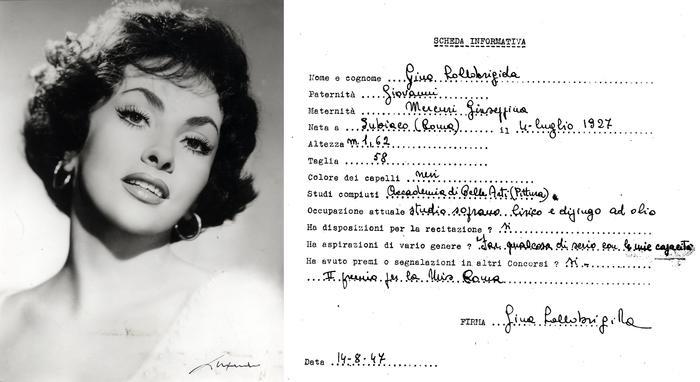 SCHEDA INFORMATIVA
Nome e cognome .... Gina Lollobrigida
Paternità .... Giovanni
Maternità .... Mercuri Giuseppina
Nata a ... Subiaco (Roma) .... il 4-luglio 1927
Altezza m. 1,62
Taglia .... 58
Colore dei capelli ... neri
Studi compiuti Accademia di Belle Arti (Pittura).
Occupazione attuale studio soprano lirico e dipingo ad olio
Ha disposizioni per la recitazione ? si
Ha aspirazioni di vario genere ? Far qualcosa di serio con le mie capacità
Ha avuto premi o segnalazioni in altri Concorsi ? si -
II premio per la Miss Roma
FIRMA Gina Lollobrigida
Data 14-8-47